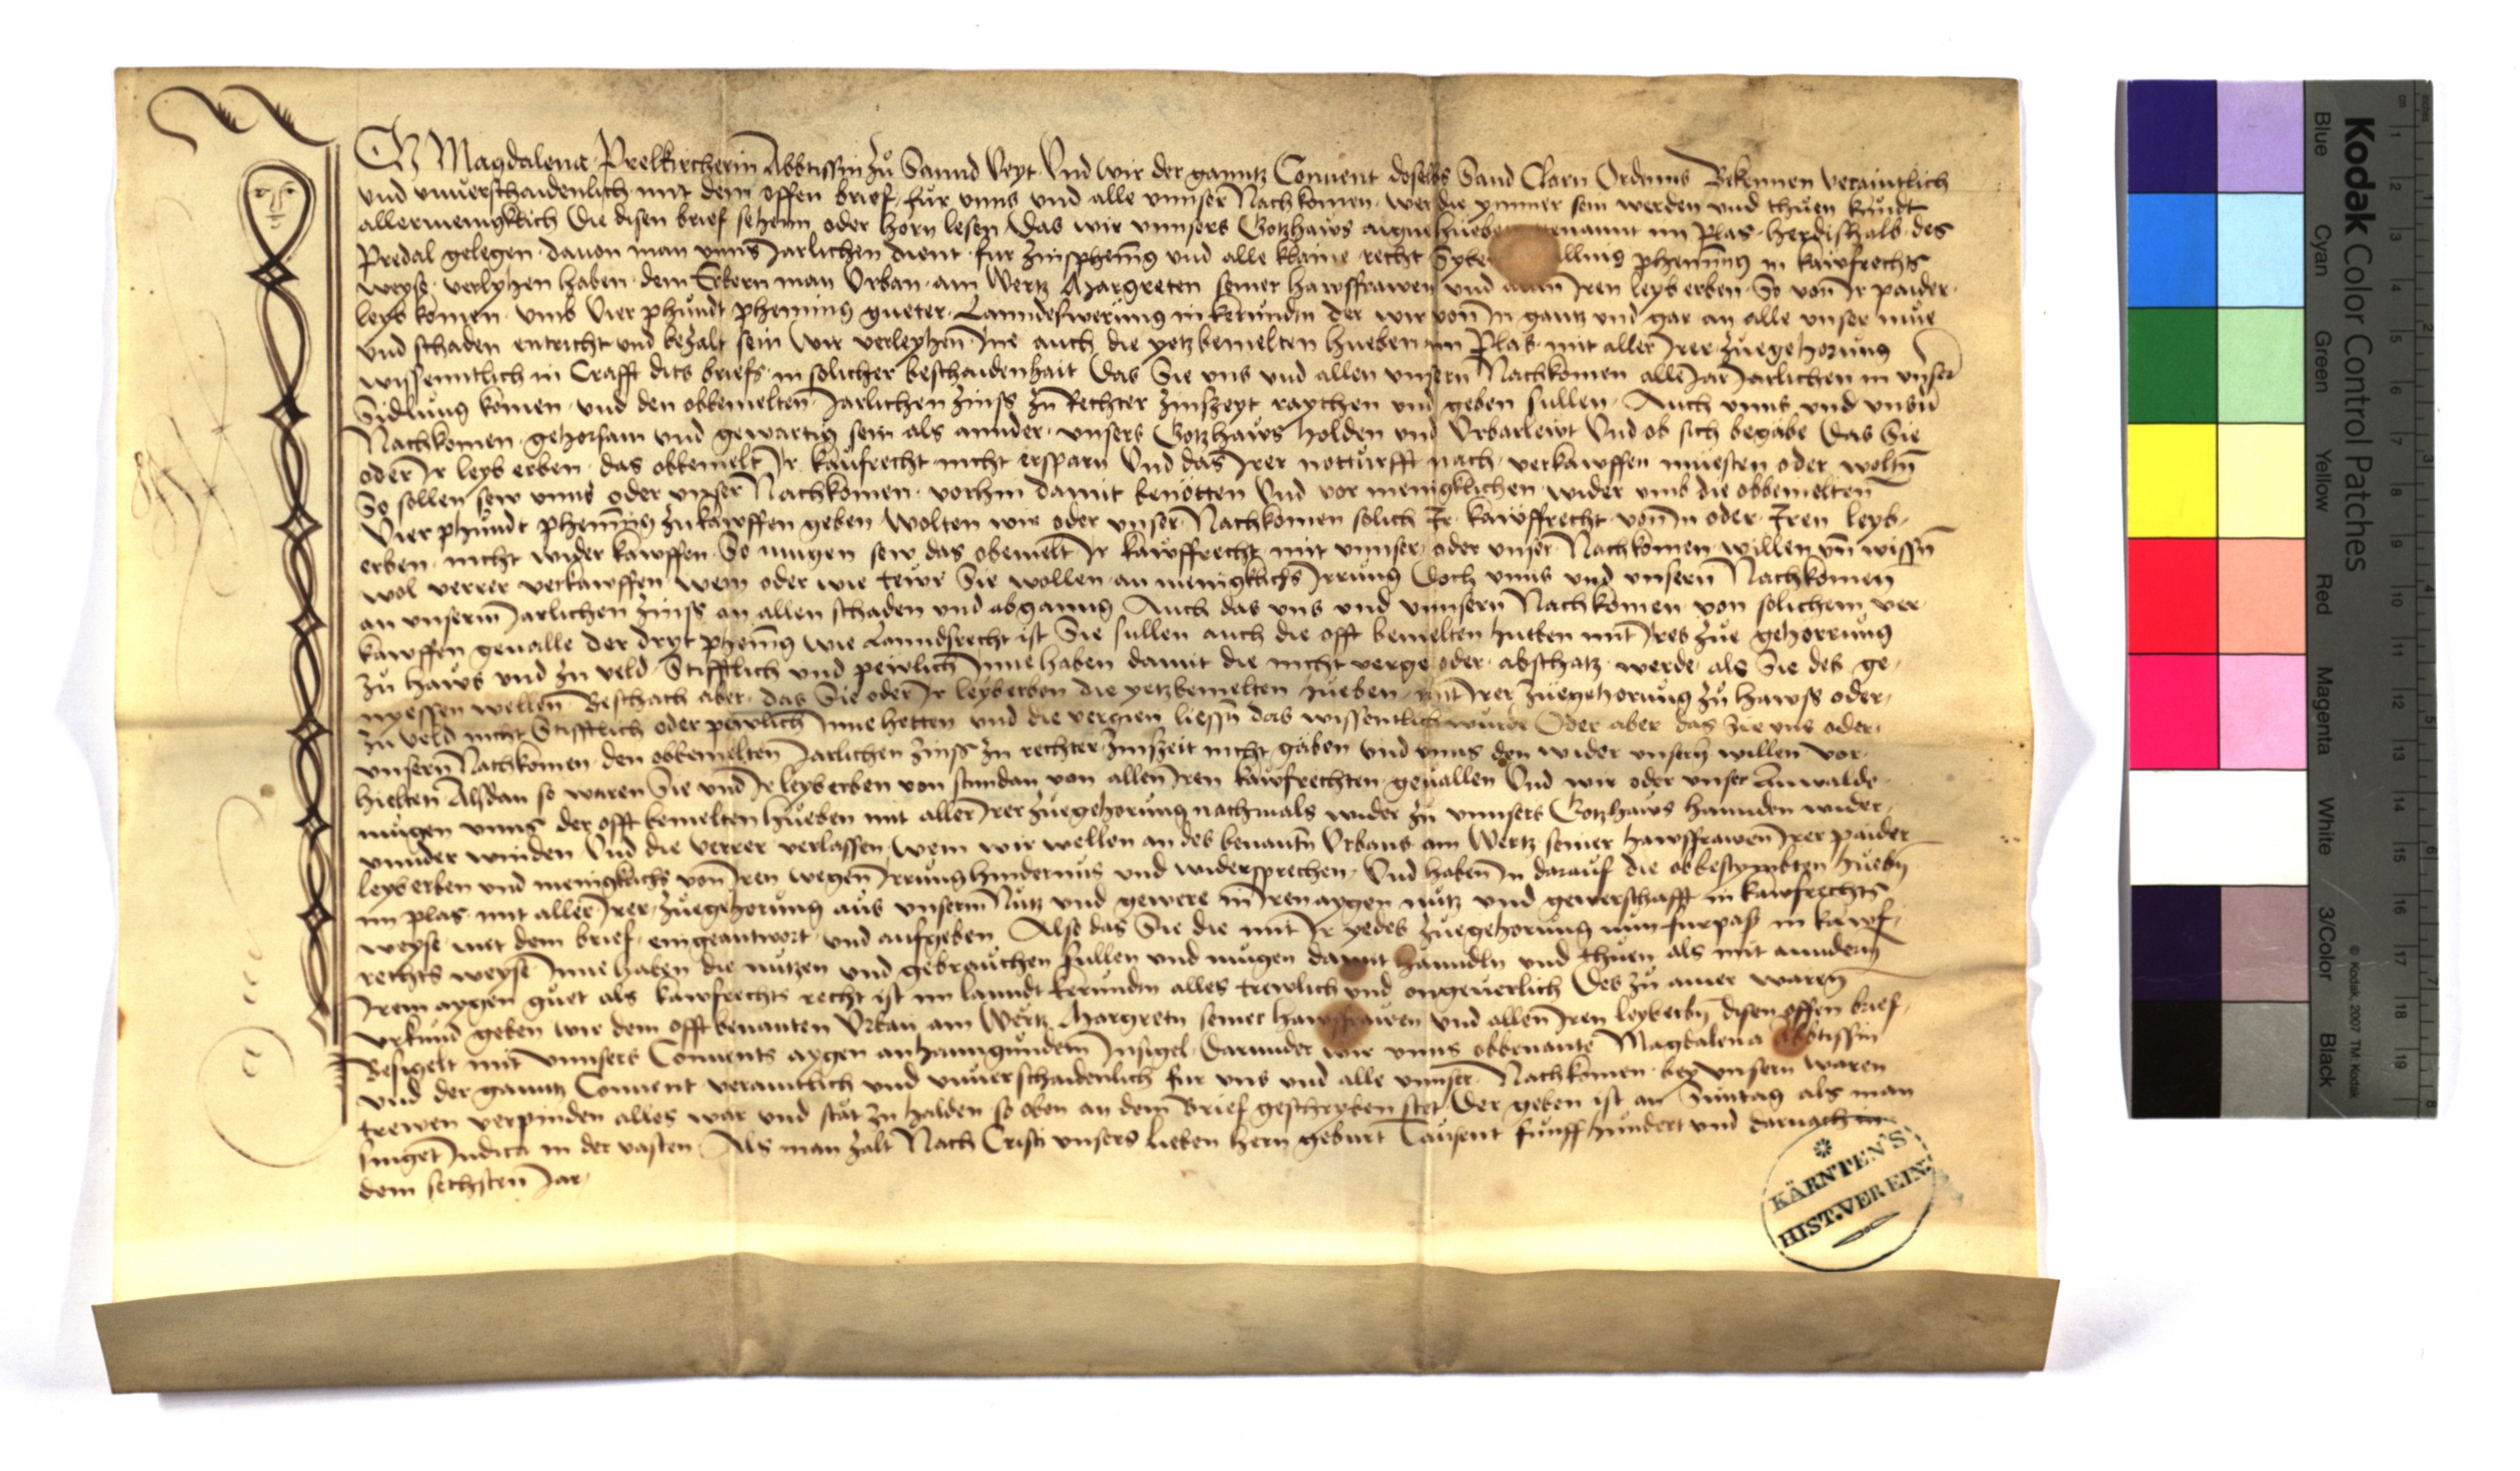 Ich Magdalena Prelkircherin Abbtissin zu Sannd Veyt Vnd wir der ganntz Conuent doselbs Sand Clarn Ordenns Bekennen verainttlich
vnd vnuerschaidenlich mit dem offen brief fur vnns vnd alle vnnser Nachkomen wer die ymmer sein werden vnd thuen kundt
allermenigklich Die disen brief sehenn oder horn lesen Das wir vnnsers Gotzhaws aigne hueben genannt im Plas herdishalb des
Predal gelegen dauon man vnns Jarlichen dient fur zinsphening vnd alle klaine recht phenning in kawfrechts
weyse verlyhen haben dem Erbern man Vrban am Wertz Margreten seiner hawsfrawen vnd Iren leyb erben So von Ir paider
leyb komen vmb Vier phundt phening gueter Lanndeswerung in kerndtn der wir von In gantz vnd gar an alle vnser mue
vnd schaden entricht vnd bezalt sein Wir verleyhen Ine auch die yetzbemelten hueben im Plas mit aller Irer zuegehorung
wissenntlich in Crafft dits briefs in solicher beschaidenhait Das Sie vns vnd allen vnsern Nachkomen alle Jar Jarlichen in vnser
Stidlung komen vnd den obbemelten Jarlichen zinss zu Rechter zinszeyt raychen vnd geben sullen Auch vnns vnd vnsern
Nachkomen gehorsam vnd gewartig sein als annder vnsers Gotzhaws holden vnd Vrbarlewt Vnd ob sich begabe Das Sie
oder Ir leyb erben das obbemelt Ir kaufrecht nicht ersparn Vnd das Irer notturfft nach verkawffen muesten oder woltn
So sollen sew vnns oder vnser Nachkomen vorhin damit benotten Vnd vor menigklichen wider vmb die obbemelten
Vier phundt phening zu kawffen geben Wolten wir oder vnser Nachkomen solich Ir kawffrecht von In oder Iren leyb
erben nicht wider kawffen So mugen sew das obemelt Ir kawffrecht mit vnnser oder vnser Nachkomen willen vn wissn
wol verrer verkawffen wem oder wie tewr Sie wollen an menigklichs Irrung Doch vnns vnd vnsern Nachkomen
an vnserm Jarlichen zinss an allen schaden vnd abganng Auch das vns vnd vnnsern Nachkomen von solichem ver
kawffen geualle der dryt phening wie Lanndsrecht ist Sie sullen auch die offt bemelten hueben mit Irer zue gehorrung
zu haws vnd zu veld Stifftlich vnd pewlich Inne haben damit die nicht verge oder abschatz werde als Sie des ge
nyessen wellen Beschach aber das Sie oder Ir leyberben die yetzbemelten hueben mit Irer zuegehorung zu hawss oder
zu veld nicht Stifftlich oder pewlich Inne hetten vnd die vergien liessn das wissentlich wurde Oder aber das Sie vns oder
vnsern Nachkomen den obbemelten Jarlichen zinss zu rechter zinszeit nicht gaben vnd vnns den wider vnsern willen vor
hielten Alsdan so waren Sie vnd Ir leyberben von stundan von allen Iren kawfrechten geuallen Vnd wir oder vnser Anwalde
mugen vnns der offt bemelten hueben mit aller Irer zuegehorung nachmals wider zu vnnsers Gotzhaws hannden wider
vnnder winden Vnd die verrer verlassen wem wir wellen an des benantn Vrbans am Wertz seiner hawsfrawen Irer paider
leyb erben vnd menigklichs von Iren wegen Irrung hindernus vnd widersprechen Vnd haben In darauf die obbestymbten huebn
im plas mit aller Irer zuegehorung aus vnserm Nutz vnd gewere in Iren aygen nutz vnd gewerschafft in kawfrechts
weyse mit dem brief eingeantwort vnd aufgeben Also das Sie die mit Ir yedes zuegehorung nun furpas in kawf
rechts weyse Inne haben die nutzen vnd gebrauchen sullen vnd mugen damit hanndln vnd thuen als mit anndern
Irem aygen guet als kawfrechts recht ist im lanndt kerndtn alles trewlich vnd ongeuerlich Des zu ainer waren
vrkund geben wir dem offt benanten Vrban am Wertz Margretn seiner hawsfrawen vnd allen Iren leyberbn disen offen brief
Besigelt mit vnnsers Conuents aygen anhanngundem Insigel Darunder wir vnns obbenante Magdalena Abbtissin
vnd der ganntz Conuent veraintlich vnd vnuerschaidenlich fur vns vnd alle vnnser Nachkomen bey vnsern waren
trewen verpinden alles war vnd stat zu halden so oben an dem Brief geschryben stet Der geben ist an Suntag als man
singet Iudica in der vasten Als man zalt Nach Cristi vnsers lieben hern geburt Tausent funffhundert vnd darnach in
dem sechsten Jar
KÄRNTEN'S
HIST.VEREIN.
Kodak Color Control Patches
© Kodak, 2007 TM: Kodak
Blue Cyan Green Yellow Red Magenta White 3/Color Black
cm 1 2 3 4 5 6 7 8 9 10 11 12 13 14 15 16 17 18 19
inches 1 2 3 4 5 6 7 8